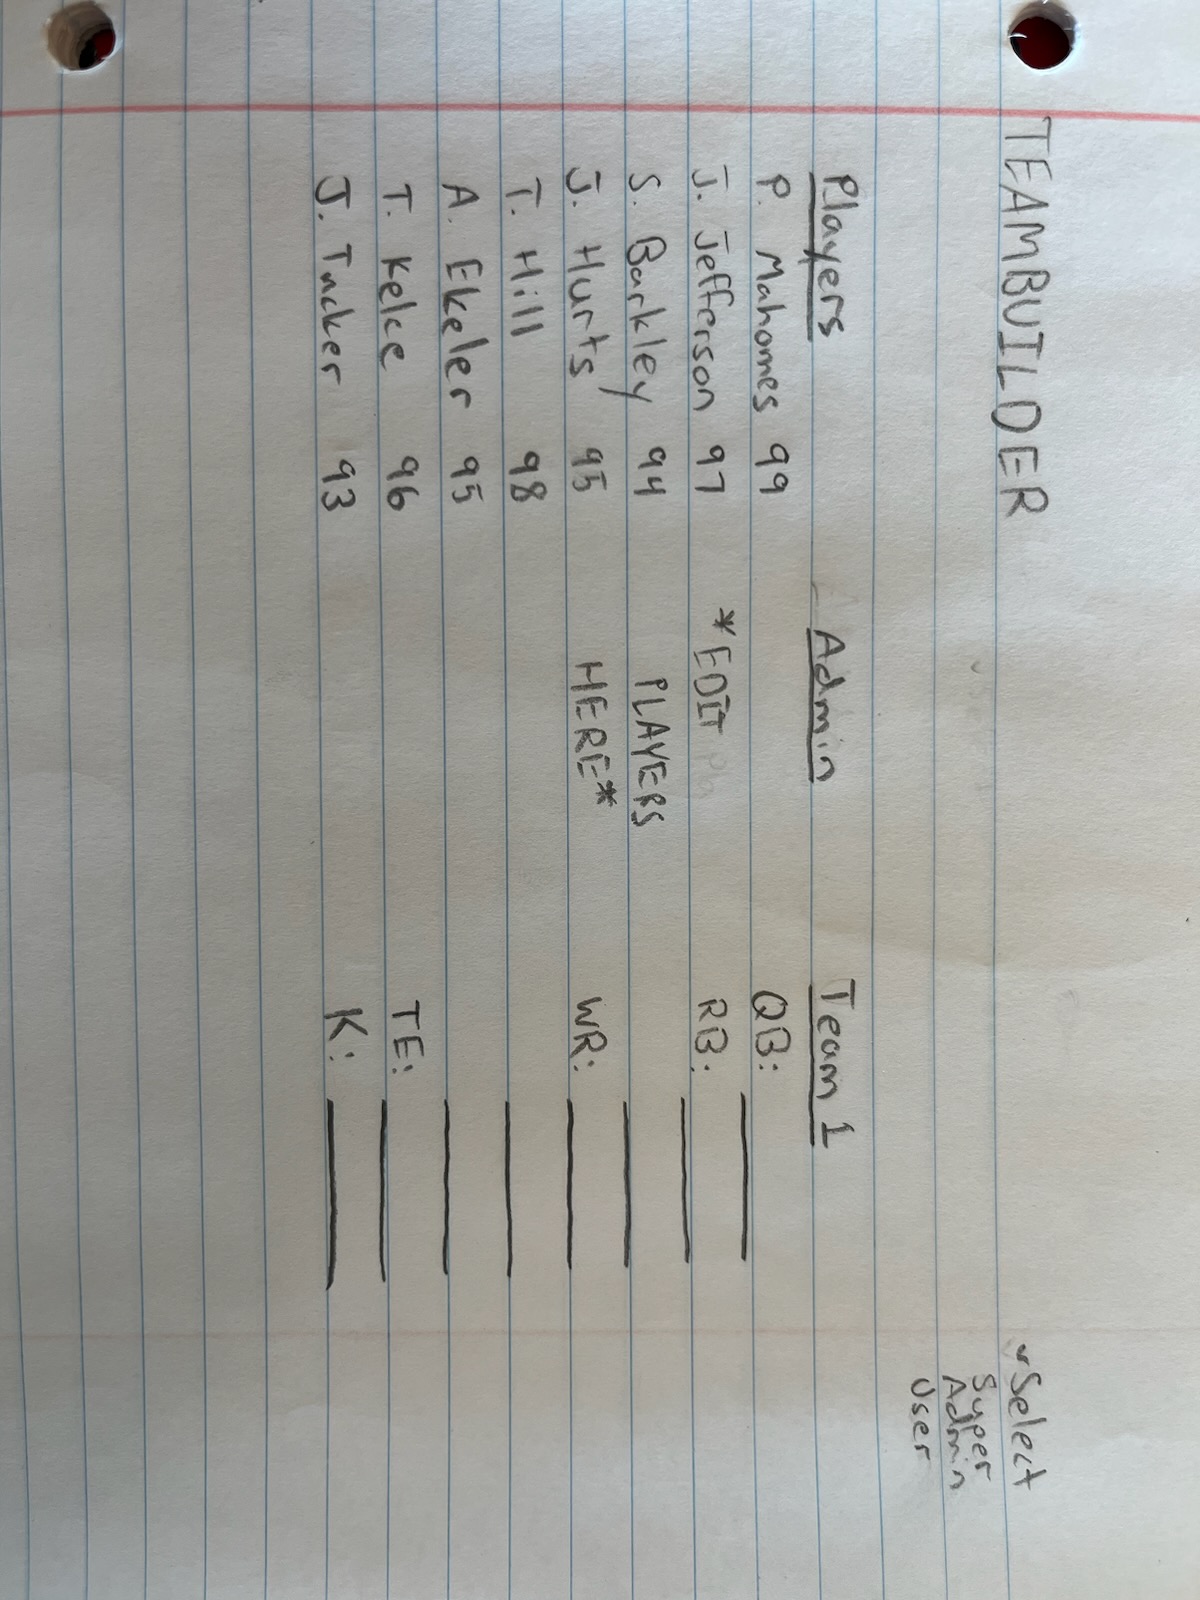 TEAMBUILDER
Select
Super
Admin
User
Players
P. Mahomes 99
J. Jefferson 97
S. Barkley 94
J. Hurts 95
T. Hill 98
A. Ekeler 95
T. Kelce 96
J. Tucker 93
Admin
*EDIT
PLAYERS
HERE*
Team 1
QB:
RB:
WR:
TE:
K: